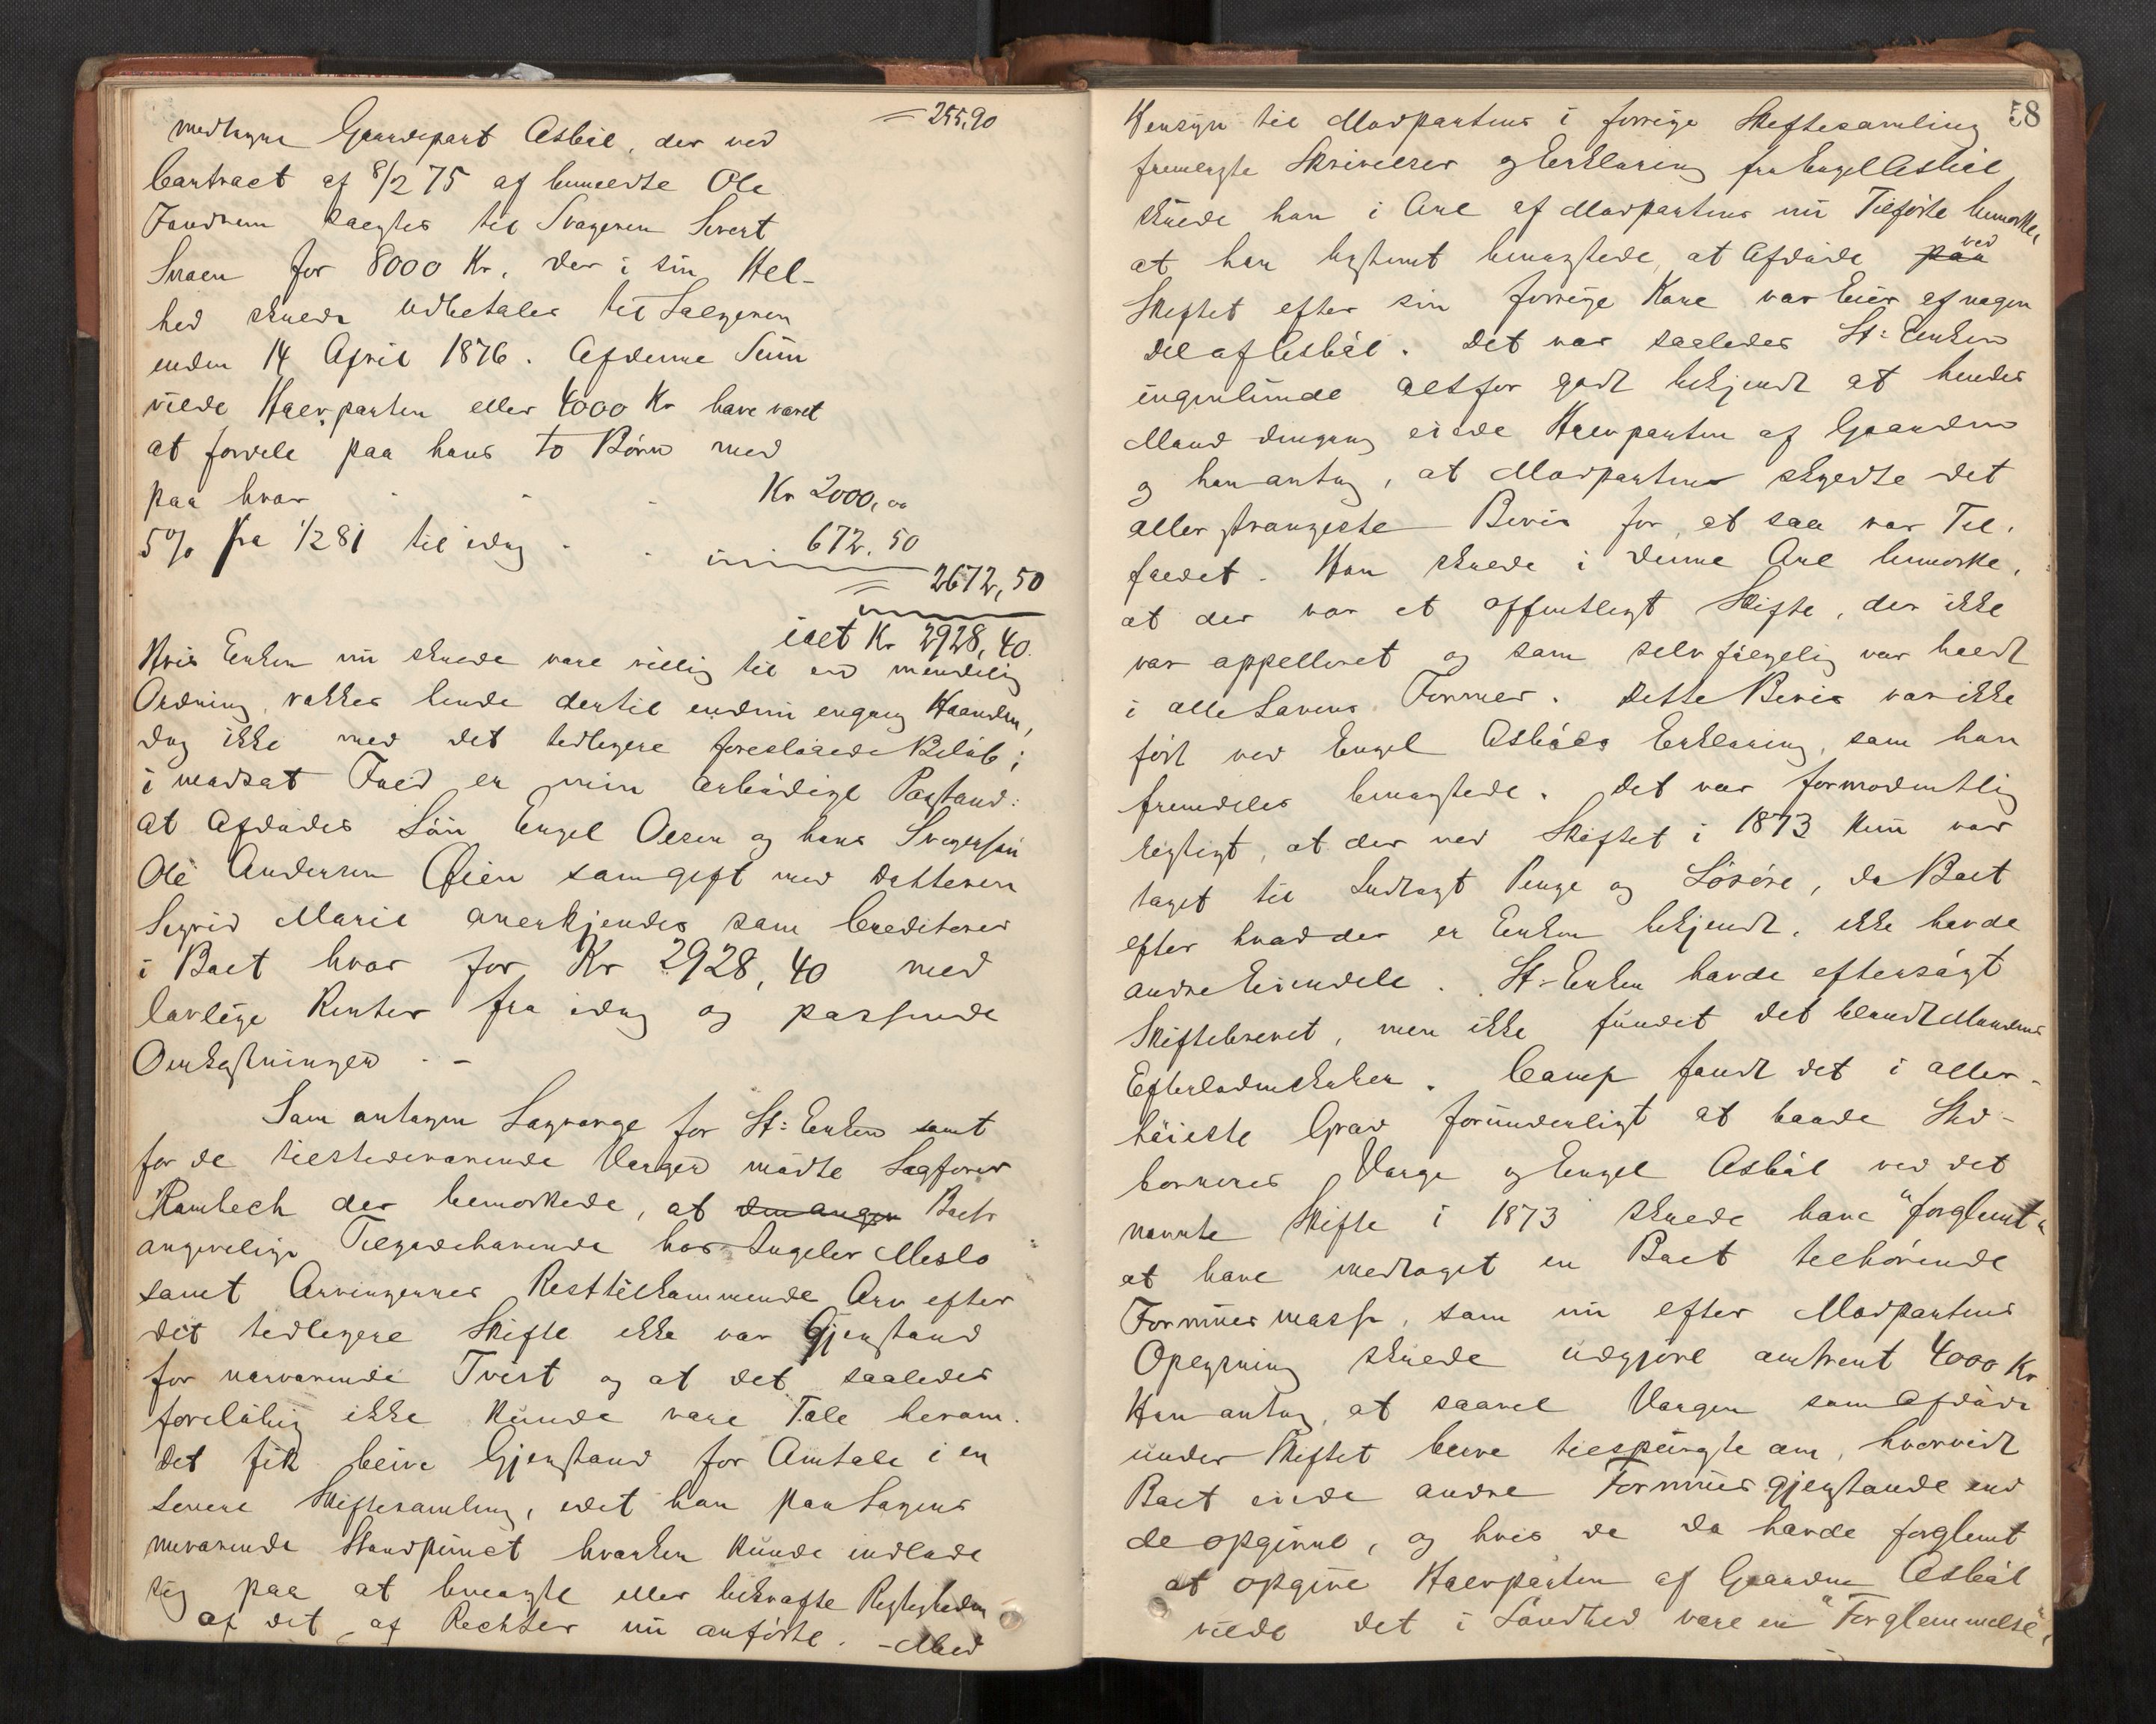 = 255,90
medtagne Gaardepart Asbøl, der ved
Contract af 8/2 75 af bemeldte Ole
Jandrem solgtes til Svogeren Sivert
Snoen for 8000 Kr, der i sin Hel-
hed skulde udbetales til Sælgeren
inden 14 April 1876. Af denne Sum
vilde Halvparten eller 4000 Kr have været
at fordele paa hans to Børn med
paa hver Kr 2000,00
5% fra 1/2 81 til idag 672.50
= 2672,50
ialt Kr 2928,40.
Hvis Enken nu skulde være villig til en mindelig
Ordning, rækkes hende dertil endnu engang Haanden,
dog ikke med det tidligere foreslaaede Beløb;
i modsat Fald er min ærbødige Paastand:
at Afdødes Søn Engel Olsen og hans Svigersøn
Ole Andersen Øien samgift med Datteren
Sigrid Marie anerkjendes som Creditorer
i Boet hver for Kr 2928,40 med
lovlige Renter fra idag og passende
Omkostninger. -
Som antagen Lagværge for St: Enken samt
for de tilstedeværende Værger mødte Sagfører
Rambech der bemærkede, at den angiv Boets
angivelige Tilgodehavende hos Ingeler Meslo
samt Arvingernes Resttilkommende Arv efter
det tidligere Skifte ikke var Gjenstand
for nærværende Tvist og at det saaledes
foreløbig ikke kunde være Tale herom.
Det fik blive Gjenstand for Omtale i en
senere Skiftesamling, idet han paa Sagens
nuværende Standpunct hverken kunde indlade
sig paa at benægte eller bekræfte Rigtigheden
af det af Rechter nu anførte. - Med
58
Hensyn til Modpartens i forrige Skiftesamling
fremlagte Skrivelser og Erklæring fra Engel Asbøl
skulde han i Anl af Modpartens nu Tilførte bemærke,
at han bestemt benægtede, at Afdøde paa ved
Skiftet efter sin forrige Kone var Eier af nogen
Del af Asbøl. Det var saaledes St: Enken
ingenlunde altfor godt bekjendt at hendes
Mand dengang eiede Halvparten af Gaarden
og han antog, at Modparten skyldte det
allerstrængeste Bevis for, at saa var Til-
fældet. Han skulde i denne Anl bemærke,
at der var et offentligt Skifte, der ikke
var appelleret og som selvfølgelig var holdt
i alle Lovens Former. Dette Bevis var ikke
ført ved Engel Asbøls Erklæring, som han
fremdeles benægtede. Det var formodentlig
rigtigt, at der ved Skiftet i 1873 kun var
taget til Indtægt Penge og Løsøre, da Boet
efter hvad der er Enken bekjendt, ikke havde
andre Eiendele. St: Enken havde eftersøgt
Skiftebrevet, men ikke fundet det blandt Mandens
Efterladenskaber. Comp fandt det i aller-
høieste Grad forunderligt at baade Sted-
børnenes Værge og Engel Asbøl ved det
nævnte Skifte i 1873 skulde have "forglemt"
at have medtaget en Boet tilhørende
Formuesmasse, som nu efter Modpartens
Opregning skulde udgjøre omtrent 4000 Kr
Han antog, at saavel Værgen som Afdøde
under Skiftet blev tilspurgte om, hvorvidt
Boet eiede andre Formuesgjenstande end
de opgivne, og hvis de da havde forglemt
at opgive Halvparten af Gaarden Asbøl
vilde det i Sandhed være en "Forglemmelse",